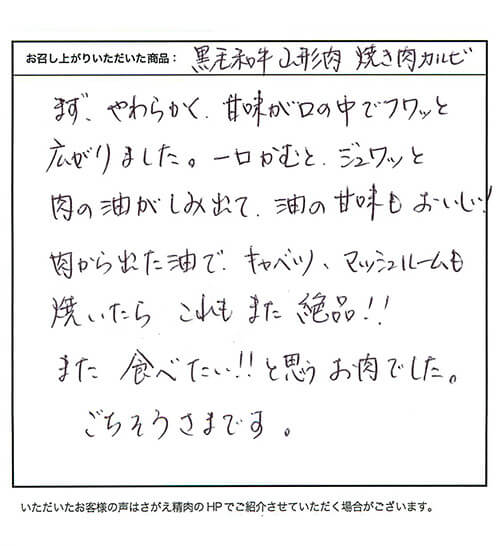 お召し上がりいただいた商品： 黒毛和牛 山形肉 焼き肉カルビ
まず、やわらかく、甘味が口の中でフワッと
広がりました。一口かむと、ジュワッと
肉の油がしみ出て、油の甘味もおいしい!
肉から出た油で、キャベツ、マッシュルームも
焼いたら これもまた 絶品!!
また 食べたい!!と思う お肉でした。
ごちそうさまです。
いただいたお客様の声はさがえ精肉のHPでご紹介させていただく場合がございます。